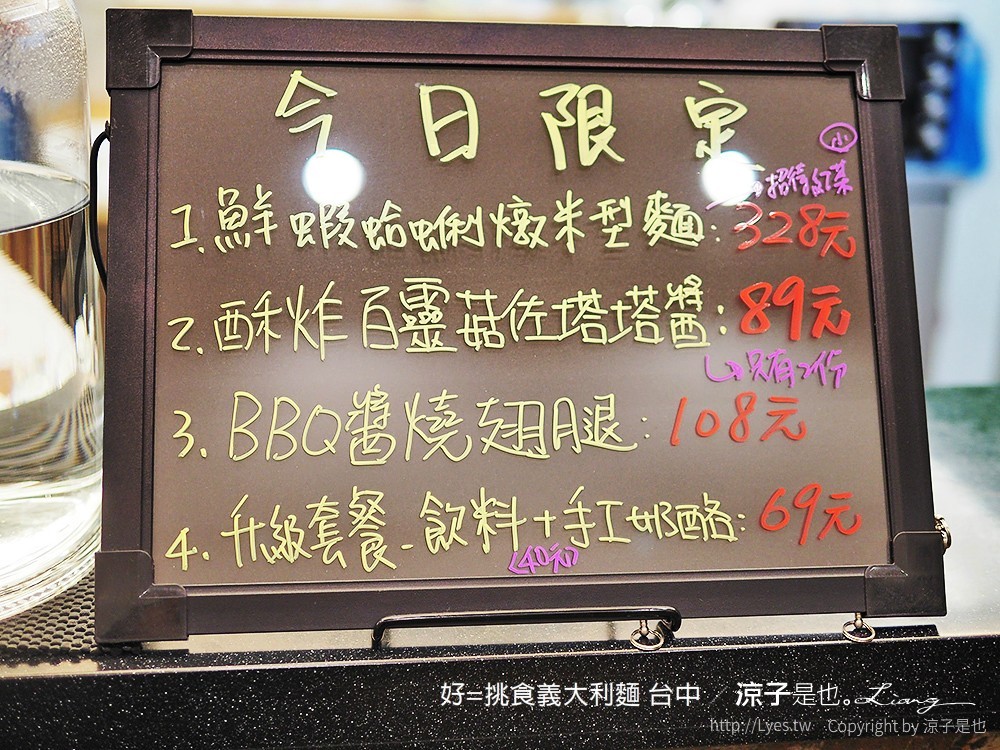 今日限定
小
招待紅茶
1.鮮蝦蛤蜊燉米型麵:328元
2.酥炸百靈菇佐塔塔醬:89元
只有2份
3.BBQ醬燒翅腿:108元
4.升級套餐-飲料+手工奶酪:69元
(40元)
好=挑食義大利麵 台中／涼子是也。Liang
http://Lyes.tw Copyright by 涼子是也